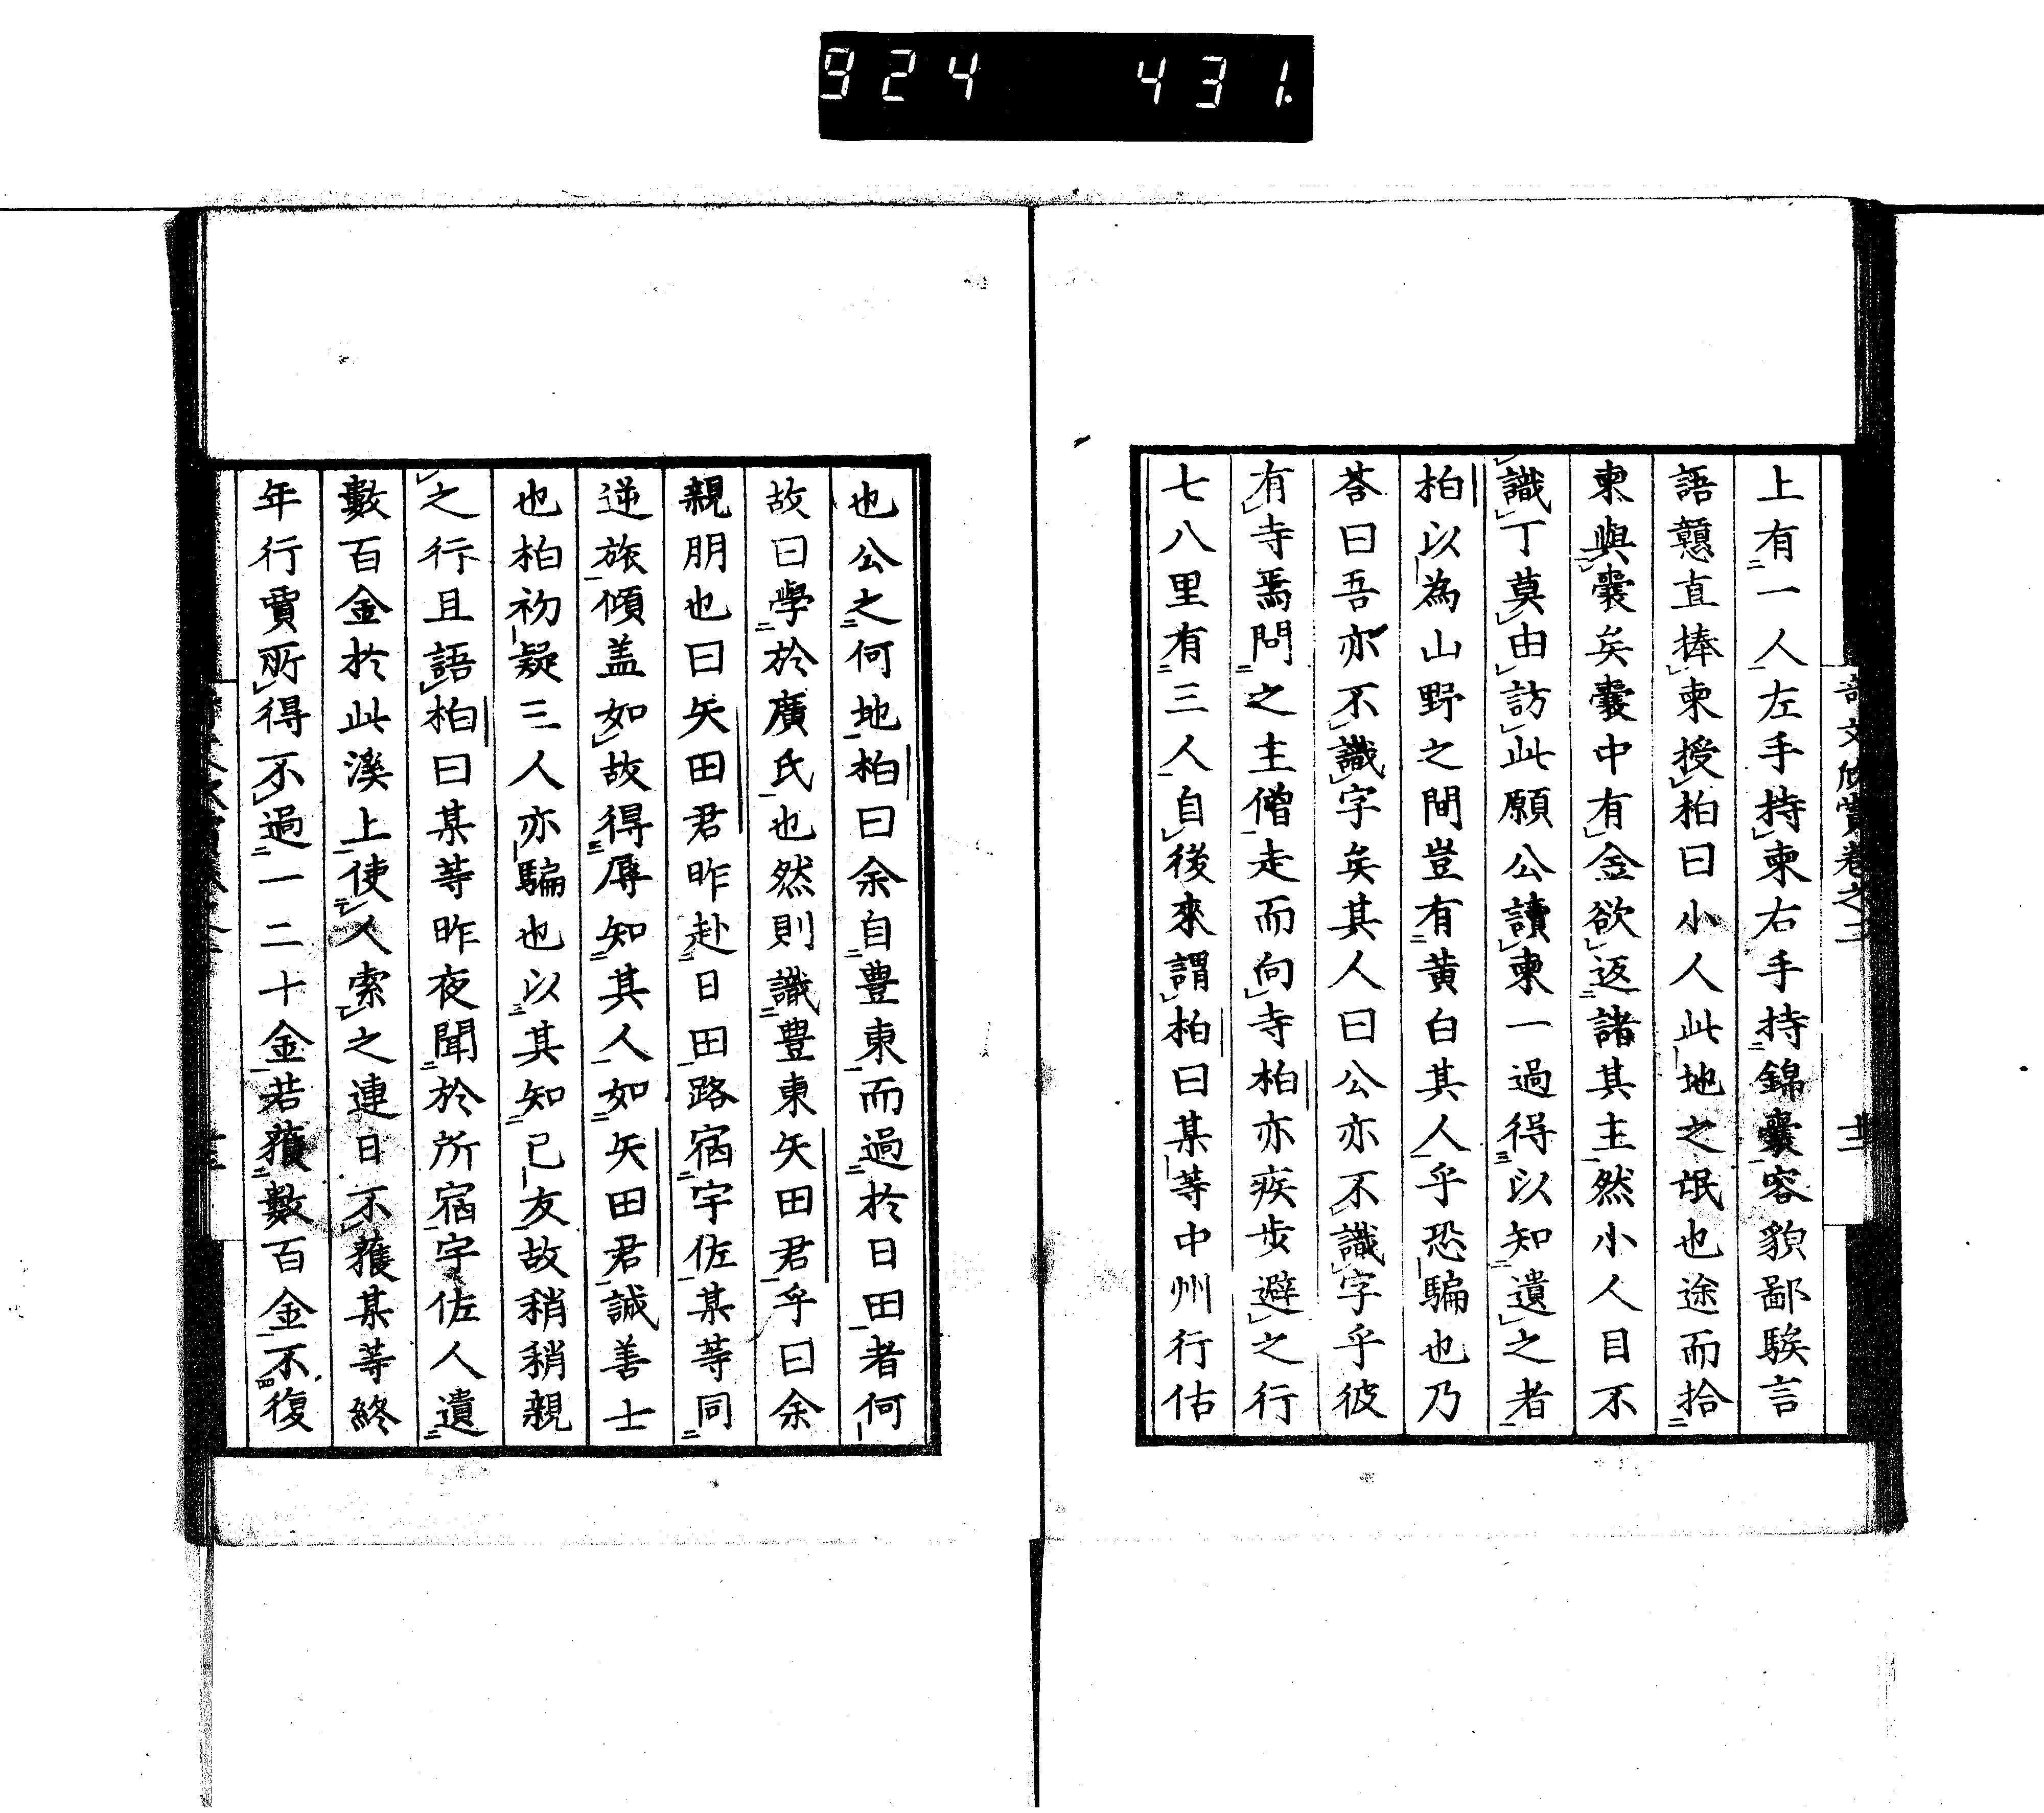 924 431.
上有一人左手持柬右手持錦囊容貌鄙騃言
語戇直捧柬授柏曰小人此地之氓也途而拾
柬與囊矣囊中有金欲返諸其主然小人目不
識丁莫由訪此願公讀柬一過得以知遺之者
柏以為山野之間豈有黃白其人乎恐騙也乃
荅曰吾亦不識字矣其人曰公亦不識字乎彼
有寺焉問之主僧走而向寺柏亦疾步避之行
七八里有三人自後來謂柏曰某等中州行估
也公之何地柏曰余自豊東而過於日田者何
故曰學於廣氏也然則識豊東矢田君乎曰余
親朋也曰矢田君昨赴日田路宿宇佐某等同
逆旅傾盖如故得辱知其人如矢田君誠善士
也柏初疑三人亦騙也以其知已友故稍稍親
之行且語柏曰某等昨夜聞於所宿宇佐人遺
數百金於此溪上使人索之連日不獲某等終
年行賈所得不過一二十金若獲數百金不復